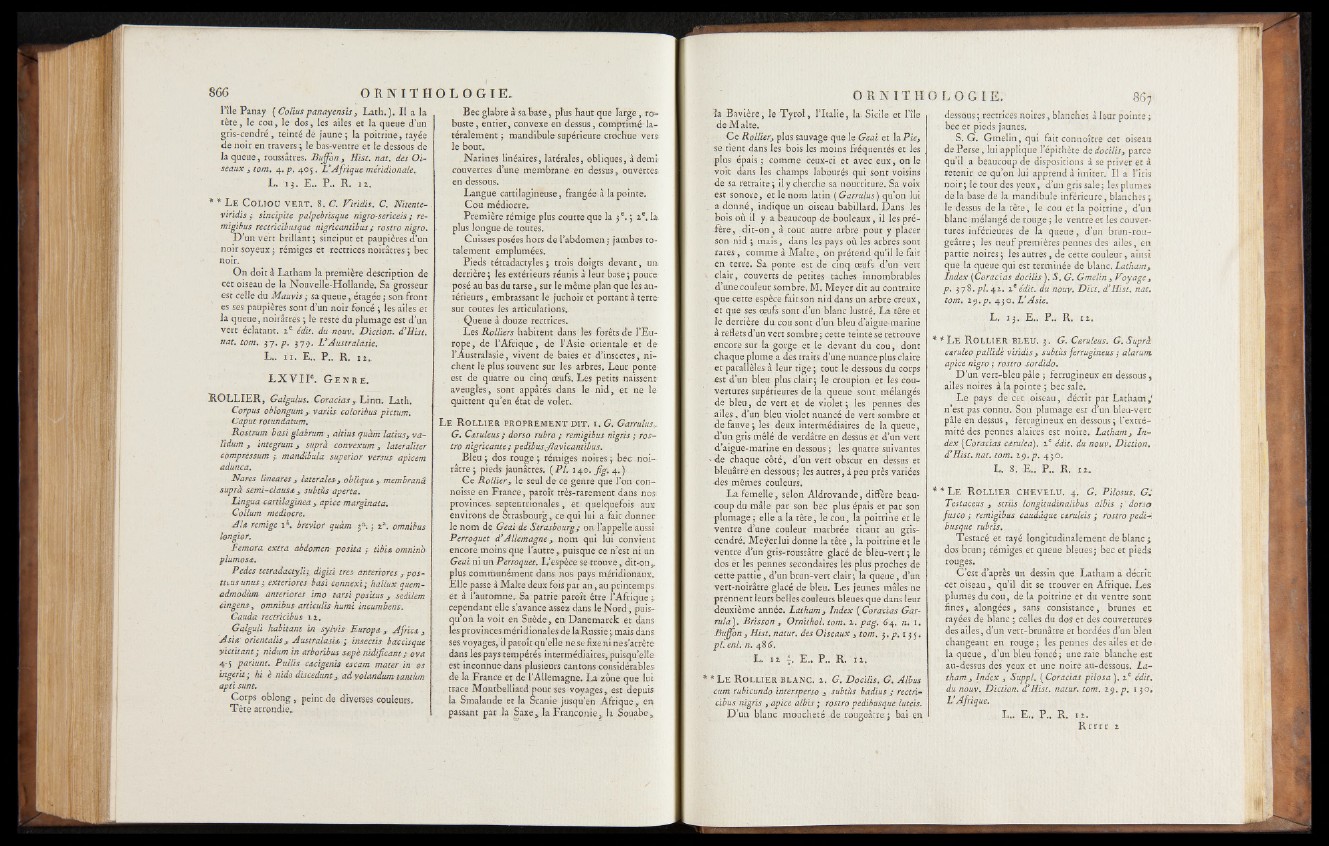 866 ORNITHOLOGIE.
l'île Panay (Colius panayensis, Lath.). Il a la
tête, le cou, le dos, les ailes et la queue d'un
gris-cendré, teinté de jaune ; la poitrine, rayée
de noir en travers ; le bas-ventre et le dessous de
la queue, roussâtres. Buffon, Hist. nat. des Oi-
seaux, tom. 4. p. 405. L'Afrique méridionale.
L. 13. E.. P.. R. 12.
* * LE COLIOU VERT. 8. C. Viridis. C. Nitente-
viridis ; sincipite palpebrisque nigro-sericeis ; re-
migibus rectricibusque nigricantibus ; rostro nigro.
D'un vert brillant ; sinciput et paupières d'un
noir soyeux ; rémiges et rectrices noirâtres ; bec
noir.
On doit à Latham la première description de
cet oiseau de la Nouvelle-Hollande. Sa grosseur
est celle du Mauvis ; sa queue, étagée ; son front
et ses paupières sont d'un noir foncé ; les ailes et
la queue, noirâtres ; le reste du plumage est d'un
vert éclatant. 2e édit. du nouv. Diction. d'Hist.
nat. tom. 37. p. 379. L'Australasie.
L.. 11. E.. P.. R. 12.
LXVIIe. GENRE.
ROLLIER, Galgulus. Coracias, Linn. Lath.
Corpus oblongum, variis coloribus pictum.
Caput rotundatum.
Rostrum basi glabrum, altius quàm latius, va-
lidum, integrum, suprà convexum, lateraliter
compressum ; mandibula superior versùs apicem
adunca.
Nares lineares, laterales, obliquæ, membranâ
suprà semi-clausæ, subtùs apertæ.
Lingua cartilaginea, apice marginata.
Collum mediocre.
Alæ remige 1a. brevior quàm 3a. ; 2a. omnibus
longior.
Femora extra abdomen posita ; tibiæ omninò
plumosæ.
Pedes tetradactyli ; digiti tres anteriores, pos-
ticus unus ; exteriores basi connexi ; hallux quem-
admodùm anteriores imo tarsi positus, sedilem
cingens, omnibus articulis humi incumbens.
Cauda rectricibus 12.
Galguli habitant in sylvis Europæ, Africæ,
Asiæ orientalis, Australasiæ ; insectis baccisque
victitant ; nidum in arboribus sæpè nidificant ; ova
4-5 pariunt. Pullis cæcigenis escam mater in os
ingerit ; hi è nido discedunt, ad volandum tantùm
apti sunt.
Corps oblong, peint de diverses couleurs.
Tête arrondie.
Bec glabre à sa base, plus haut que large, ro-
buste, entier, convexe en dessus, comprimé la-
téralement ; mandibule supérieure crochue vers
le bout.
Narines linéaires, latérales, obliques, à demi
couvertes d'une membrane en dessus, ouvertes
en dessous.
Langue cartilagineuse, frangée à la pointe.
Cou médiocre.
Première rémige plus courte que la 3e. ; 2e. la
plus longue de toutes.
Cuisses posées hors de l'abdomen ; jambes to-
talement emplumées.
Pieds tétradactyles ; trois doigts devant, un
derrière ; les extérieurs réunis à leur base ; pouce
posé au bas du tarse, sur le même plan que les an-
térieurs, embrassant le juchoir et portant à terre
sur toutes les articulations.
Queue à douze rectrices.
Les Rolliers habitent dans les forêts de l'Eu-
rope, de l'Afrique, de l'Asie orientale et de
l'Australasie, vivent de baies et d'insectes, ni-
chent le plus souvent sur les arbres. Leur ponte
est de quatre ou cinq œufs. Les petits naissent
aveugles, sont appâtés dans le nid, et ne le
quittent qu'en état de voler.
LE ROLLIER PROPREMENT DIT. 1. G. Garrulus.
G. Cæruleus ; dorso rubro ; remigibus nigris ; ros-
tro nigricante ; pedibus flavicantibus.
Bleu ; dos rouge ; rémiges noires ; bec noi-
râtre ; pieds jaunâtres. (Pl. 140. fig. 4.)
Ce Rollier, le seul de ce genre que l'on con-
noisse en France, paroît très-rarement dans nos
provinces septentrionales, et quelquefois aux
environs de Strasbourg, ce qui lui a fait donner
le nom de Geai de Strasbourg ; on l'appelle aussi
Perroquet d'Allemagne, nom qui lui convient
encore moins que l'autre, puisque ce n'est ni un
Geai ni un Perroquet. L'espèce se trouve, dit-on,
plus communément dans nos pays méridionaux.
Elle passe à Malte deux fois par an, au printemps
et à l'automne. Sa patrie paroît être l'Afrique ;
cependant elle s'avance assez dans le Nord, puis-
qu'on la voit en Suède, en Danemarck et dans
les provinces méridionales de la Russie ; mais dans
ses voyages, il paroît qu'elle ne se fixe ni ne s'arrête
dans les pays tempérés intermédiaires, puisqu'elle
est inconnue dans plusieurs cantons considérables
de la France et de l'Allemagne. La zône que lui
trace Montbelliard pour ses voyages, est depuis
la Smalande et la Scanie jusqu'en Afrique, en
passant par la Saxe, la Franconie, la Souabe,
ORNITHOLOGIE. 867
la Bavière, le Tyrol, l'Italie, la Sicile et l'île
de Malte.
Ce Rollier, plus sauvage que le Geai et la Pie,
se tient dans les bois les moins fréquentés et les
plus épais ; comme ceux-ci et avec eux, on le
voit dans les champs labourés qui sont voisins
de sa retraite ; il y cherche sa nourriture. Sa voix
est sonore, et le nom latin (Garrulus) qu'on lui
a donné, indique un oiseau babillard. Dans les
bois où il y a beaucoup de bouleaux, il les pré-
fère, dit-on, à tout autre arbre pour y placer
son nid ; mais, dans les pays où les arbres sont
rares, comme à Malte, on prétend qu'il le fait
en terre. Sa ponte est de cinq œufs d'un vert
clair, couverts de petites taches innombrables
d'une couleur sombre. M. Meyer dit au contraire
que cette espèce fait son nid dans un arbre creux,
et que ses œufs sont d'un blanc lustré. La tête et
le derrière du cou sont d'un bleu d'aigue-marine
à reflets d'un vert sombre ; cette teinte se retrouve
encore sur la gorge et le devant du cou, dont
chaque plume a des traits d'une nuance plus claire
et parallèles à leur tige ; tout le dessous du corps
est d'un bleu plus clair ; le croupion et les cou-
vertures supérieures de la queue sont mélangés
de bleu, de vert et de violet ; les pennes des
ailes, d'un bleu violet nuancé de vert sombre et
de fauve ; les deux intermédiaires de la queue,
d'un gris mêlé de verdâtre en dessus et d'un vert
d'aigue-marine en dessous ; les quatre suivantes
de chaque côté, d'un vert obscur en dessus et
bleuâtre en dessous ; les autres, à peu près variées
des mêmes couleurs.
La femelle, selon Aldrovande, diffère beau-
coup du mâle par son bec plus épais et par son
plumage ; elle a la tête, le cou, la poitrine et le
ventre d'une couleur marbrée tirant au gris-
cendré. Meyer lui donne la tête, la poitrine et le
ventre d'un gris-roussâtre glacé de bleu-vert ; le
dos et les pennes secondaires les plus proches de
cette partie, d'un brun-vert clair, la queue, d'un
vert-noirâtre glacé de bleu. Les jeunes mâles ne
prennent leurs belles couleurs bleues que dans leur
deuxième année. Latham, Index (Coracias Gar-
rula). Brisson, Ornithol. tom. 2. pag. 64. n. 1.
Buffon, Hist. natur. des Oiseaux, tom. 3. p. 135.
pl. enl. n. 486.
L. 12 ½. E.. P.. R. 12.
* * LE ROLLIER BLANC. 2. G. Docilis. G. Albus
cum rubicundo intersperso, subtùs badius ; rectri-
cibus nigris, apice albis ; rostro pedibusque luteis.
D'un blanc moucheté de rougeâtre ; bai en
dessous ; rectrices noires, blanches à leur pointe ;
bec et pieds jaunes.
S. G. Gmelin, qui fait connoître cet oiseau
de Perse, lui applique l'épithète de docilis, parce
qu'il a beaucoup de dispositions à se priver et à
retenir ce qu'on lui apprend à imiter. Il a l'iris
noir ; le tour des yeux, d'un gris sale ; les plumes
de la base de la mandibule inférieure, blanches ;
le dessus de la tête, le cou et la poitrine, d'un
blanc mélangé de rouge ; le ventre et les couver-
tures inférieures de la queue, d'un brun-rou-
geâtre ; les neuf premières pennes des ailes, en
partie noires ; les autres, de cette couleur, ainsi
que la queue qui est terminée de blanc. Latham,
Index (Coracias docilis). S. G. Gmelin, Voyage,
p. 378. pl. 42. 2e édit. du nouv. Dict. d'Hist. nat.
tom. 29. p. 430. L'Asie.
L. 13. E.. P.. R. 12.
* * LE ROLLIER BLEU. 3. G. Cæruleus. G. Suprà
cæruleo pallidè viridis, subtùs ferrugineus ; alarum
apice nigro ; rostro sordido.
D'un vert-bleu pâle ; ferrugineux en dessous,
ailes noires à la pointe ; bec sale.
Le pays de cet oiseau, décrit par Latham,
n'est pas connu. Son plumage est d'un bleu-vert
pâle en dessus, ferrugineux en dessous ; l'extré-
mité des pennes alaires est noire. Latham, In-
dex (Coracias cærulea). 2e édit. du nouv. Diction.
d'Hist. nat. tom. 29. p. 430.
L. 8. E.. P.. R. 12.
* * LE ROLLIER CHEVELU. 4. G. Pilosus. G.
Testaceus, striis longitudinalibus albis ; dorso
fusco ; remigibus caudâque cæruleis ; rostro pedi-
busque rubris.
Testacé et rayé longitudinalement de blanc ;
dos brun ; rémiges et queue bleues ; bec et pieds
rouges.
C'est d'après un dessin que Latham a décrit
cet oiseau, qu'il dit se trouver en Afrique. Les
plumes du cou, de la poitrine et du ventre sont
fines, alongées, sans consistance, brunes et
rayées de blanc ; celles du dos et des couvertures
des ailes, d'un vert-brunâtre et bordées d'un bleu
changeant en rouge ; les pennes des ailes et de
la queue, d'un bleu foncé ; une raie blanche est
au-dessus des yeux et une noire au-dessous. La-
tham, Index, Suppl. (Coracias pilosa). 2e édit.
du nouv. Diction. d'Hist. natur. tom. 29. p. 130.
L'Afrique.
L.. E.. P.. R. 12.
Rrrrr 2